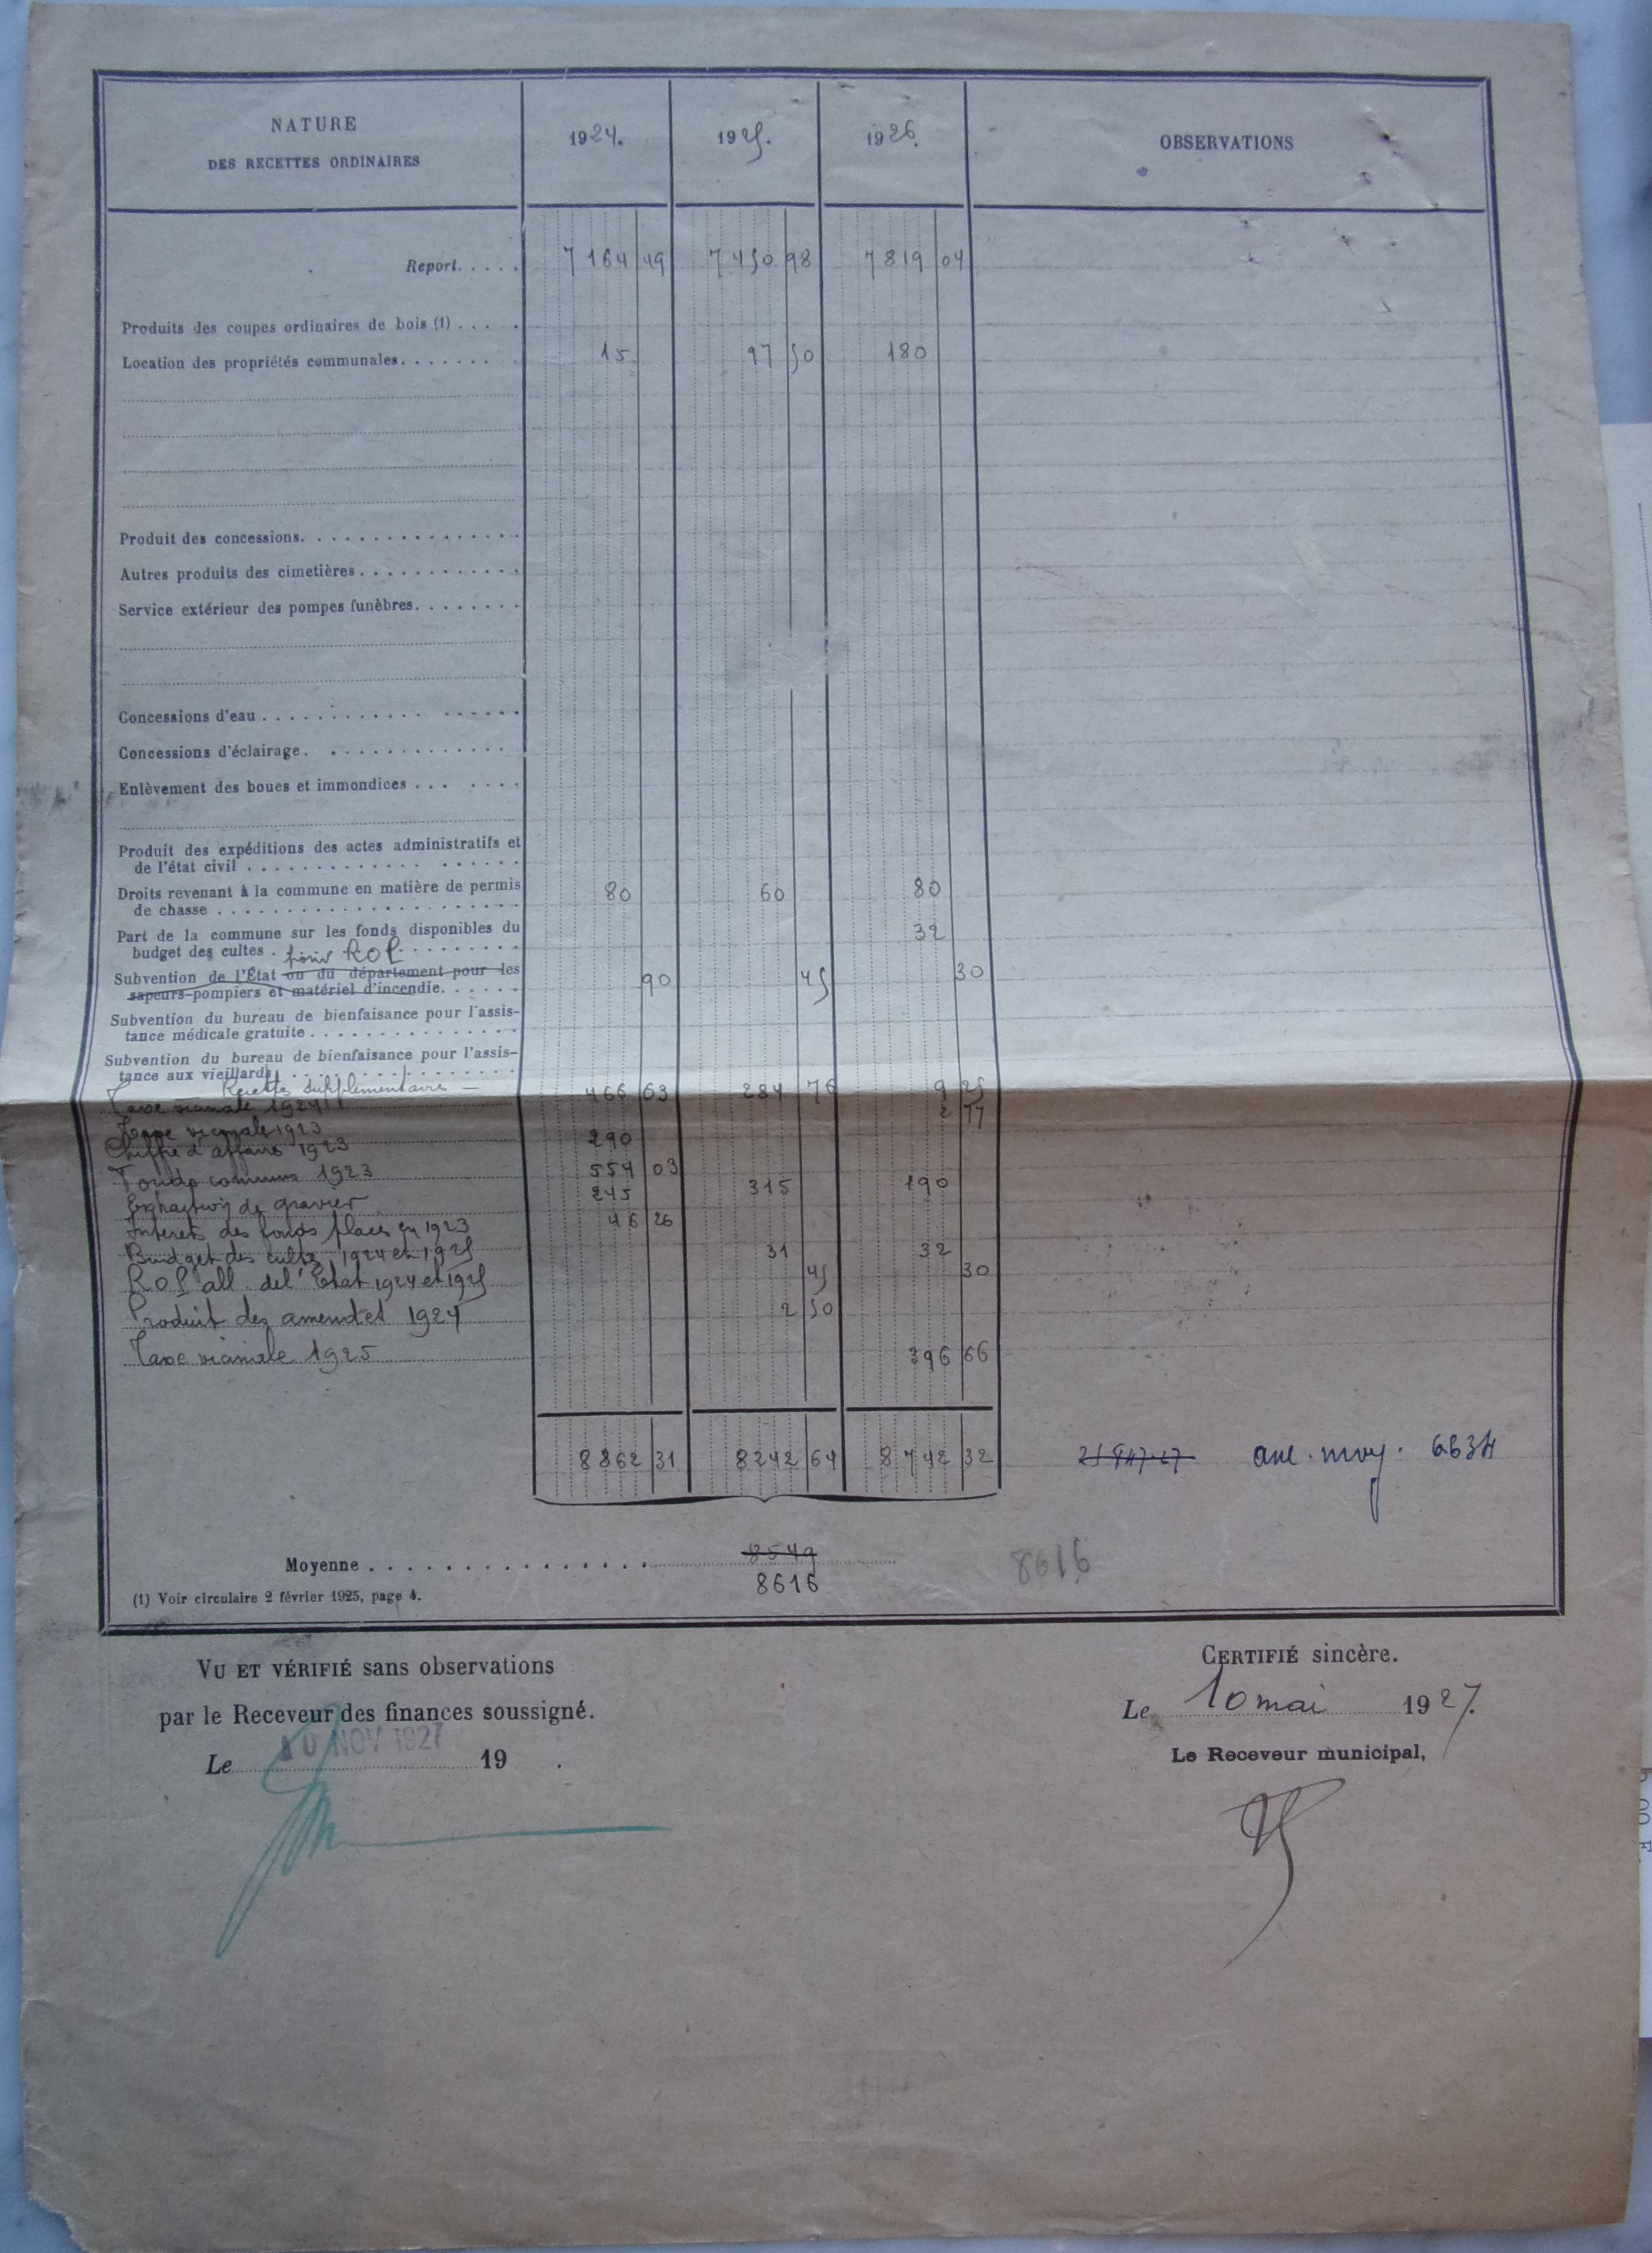 NATURE
DES RECETTES ORDINAIRES
1924.
1925.
1926.
OBSERVATIONS
Report. . . . . 7 164 49 7 450 98 7 819 04
Produits des coupes ordinaires de bois (1) . . . . .
Location des propriétés communales. . . . . . . . 15 97 50 180
Produit des concessions. . . . . . . . . . . . . . . .
Autres produits des cimetières . . . . . . . . . . . .
Service extérieur des pompes funèbres. . . . . . . .
Concessions d'eau . . . . . . . . . . . . . . . . . .
Concessions d'éclairage. . . . . . . . . . . . . . .
Enlèvement des boues et immondices . . . . . . .
Produit des expéditions des actes administratifs et
de l'état civil . . . . . . . . . . . . . . . . . .
Droits revenant à la commune en matière de permis 80 60 80
de chasse . . . . . . . . . . . . . . . . . . . . .
Part de la commune sur les fonds disponibles du 32
budget des cultes . pour ROP . . . . . . . .
Subvention de l'État ou du département pour les 90 45 30
sapeurs-pompiers et matériel d'incendie. . . . . .
Subvention du bureau de bienfaisance pour l'assis-
tance médicale gratuite . . . . . . . . . . . . . . .
Subvention du bureau de bienfaisance pour l'assis-
tance aux vieillards . . . . . . . . . . . . . . .
Recettes supplémentaires —
Taxe vicinale 1924 466 63 284 76 9 25
2 77
Taxe vicinale 1923
Chiffre d'affaires 1923 290
Fonds communs 1923 554 03
Extraction de gravier 245 315 190
Intérêts des fonds placés en 1923 46 26
Budget des cultes 1924 et 1925 31 32
ROP all. de l'Etat 1924 et 1925 45 30
Produit des amendes 1924 2 50
Taxe vicinale 1925 396 66
8862 31 8242 64 8742 32 anc. moy. 6634
Moyenne . . . . . . . . . . . . . . . . 8549
8616 8616
(1) Voir circulaire 2 février 1925, page 4.
VU ET VÉRIFIÉ sans observations
par le Receveur des finances soussigné.
Le 10 NOV 1927 19 .
CERTIFIÉ sincère.
Le 10 mai 1927.
Le Receveur municipal,